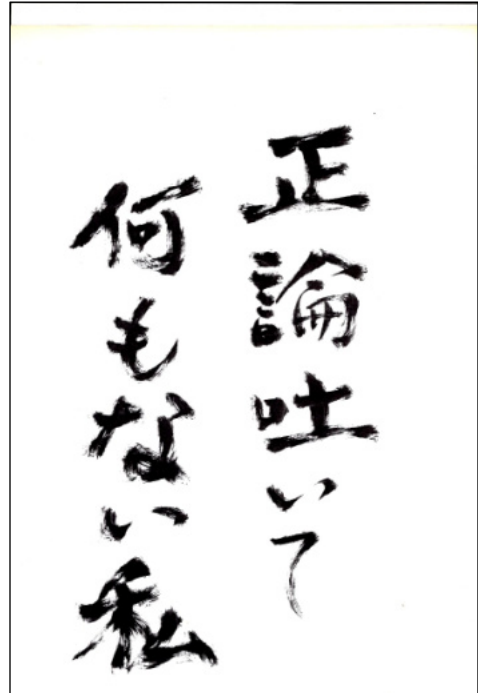 正論吐いて
何もない私